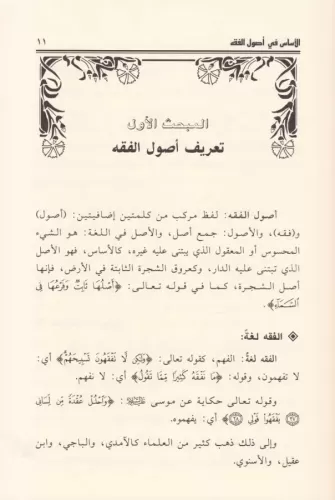 الأساس في أصول الفقه
١١
المبحث الأول
تعريف أصول الفقه
أصول الفقه: لفظ مركب من كلمتين إضافيتين: (أصول)
و(فقه)، والأصول: جمع أصل، والأصل في اللغة: هو الشيء
المحسوس أو المعقول الذي يبتنى عليه غيره، كالأساس، فهو الأصل
الذي تبتنى عليه الدار، وكعروق الشجرة الثابتة في الأرض، فإنها
أصل الشجرة، كما في قوله تعالى: ﴿أَصْلُهَا ثَابِتٌ وَفَرْعُهَا فِي
السَّمَاءِ﴾.
الفقه لغة:
الفقه لغةً: الفهم، كقوله تعالى: ﴿وَلَكِن لَّا تَفْقَهُونَ تَسْبِيحَهُمْ﴾ أي:
لا تفهمون، وقوله: ﴿مَا نَفْقَهُ كَثِيرًا مِّمَّا تَقُولُ﴾ أي: لا نفهم.
وقوله تعالى حكاية عن موسى ﷺ: ﴿وَاحْلُلْ عُقْدَةً مِّن لِّسَانِي
﴿٢٧﴾ يَفْقَهُوا قَوْلِي ﴿٢٨﴾﴾ أي: يفهموه.
وإلى ذلك ذهب كثير من العلماء كالآمدي، والباجي، وابن
عقيل، والأسنوي.